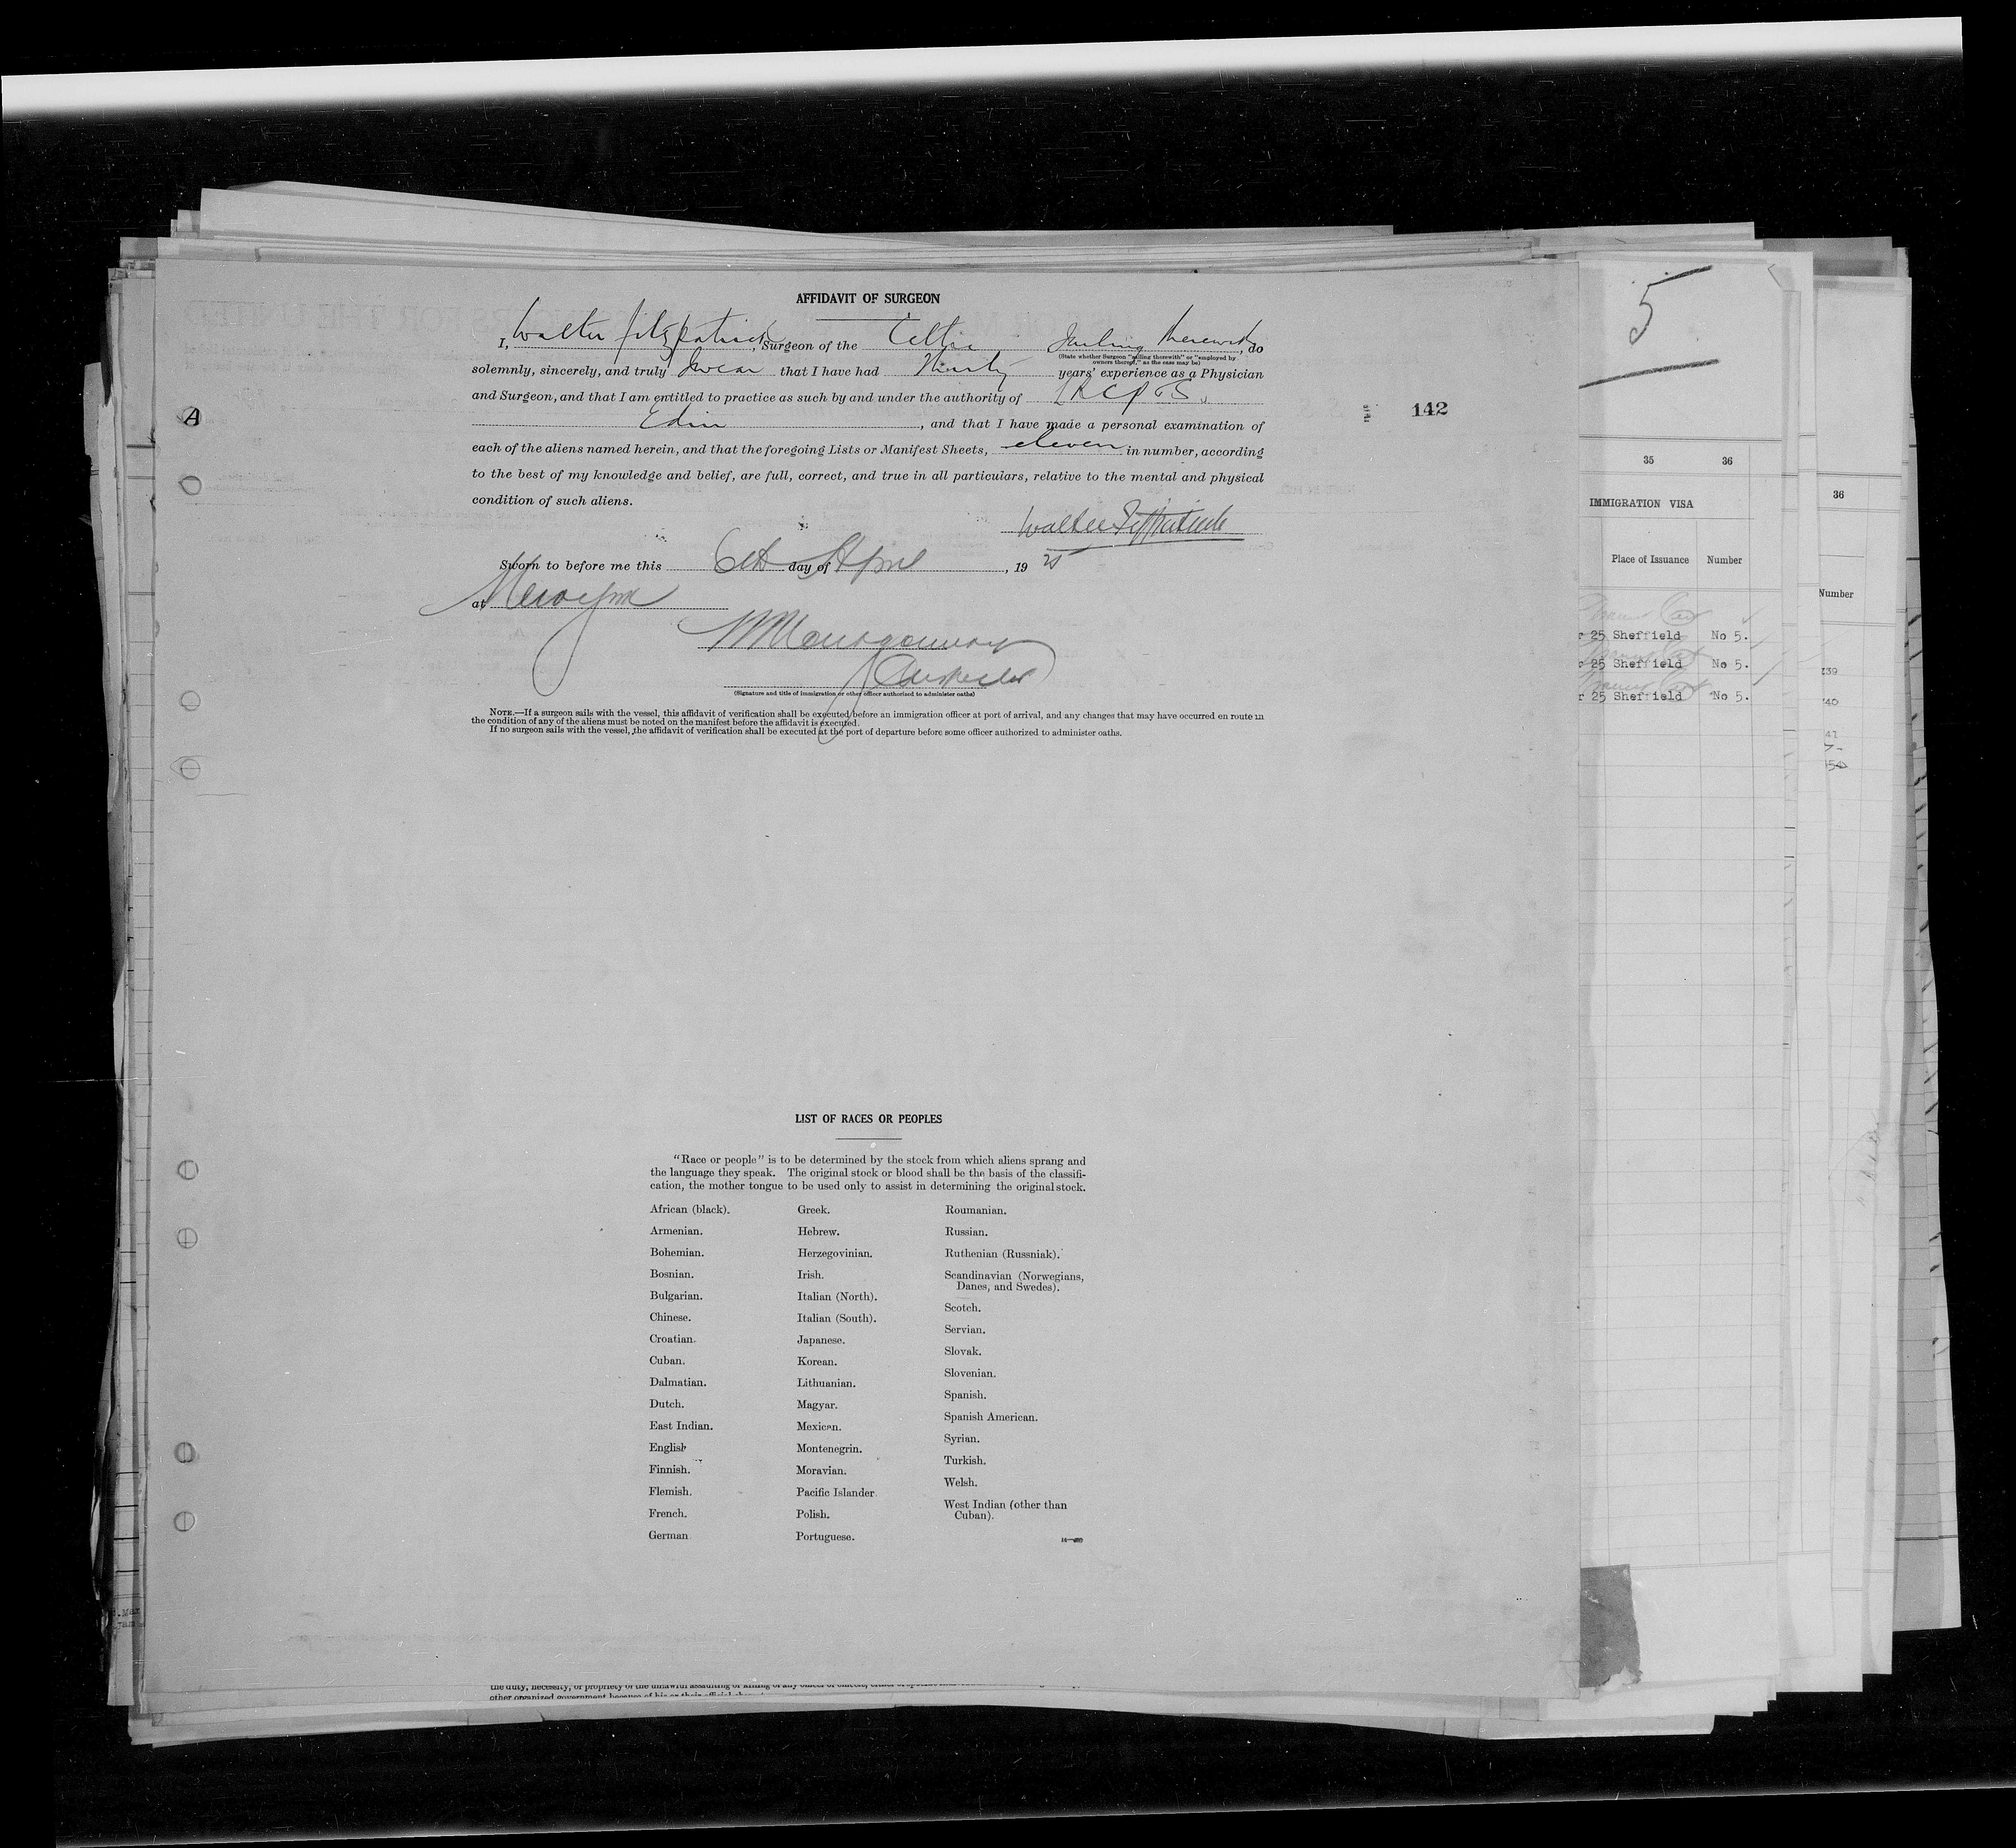 AFFIDAVIT OF SURGEON
I, Walter Fitzpatrick, Surgeon of the Celtic Sailing therewith, do
(State whether Surgeon "sailing therewith" or "employed by
owners thereof," as the case may be)
solemnly, sincerely, and truly Swear that I have had Thirty years' experience as a Physician
and Surgeon, and that I am entitled to practice as such by and under the authority of LRCP&S.
Edin, and that I have made a personal examination of
each of the aliens named herein, and that the foregoing Lists or Manifest Sheets, eleven in number, according
to the best of my knowledge and belief, are full, correct, and true in all particulars, relative to the mental and physical
condition of such aliens.
Walter Fitzpatrick
Sworn to before me this 6th day of April, 1925
at New York
Inspector
(Signature and title of immigration or other officer authorized to administer oaths)
NOTE.—If a surgeon sails with the vessel, this affidavit of verification shall be executed before an immigration officer at port of arrival, and any changes that may have occurred en route in
the condition of any of the aliens must be noted on the manifest before the affidavit is executed.
If no surgeon sails with the vessel, the affidavit of verification shall be executed at the port of departure before some officer authorized to administer oaths.
A
142
LIST OF RACES OR PEOPLES
"Race or people" is to be determined by the stock from which aliens sprang and
the language they speak. The original stock or blood shall be the basis of the classifi-
cation, the mother tongue to be used only to assist in determining the original stock.
African (black).
Armenian.
Bohemian.
Bosnian.
Bulgarian.
Chinese.
Croatian.
Cuban.
Dalmatian.
Dutch.
East Indian.
English
Finnish.
Flemish.
French.
German
Greek.
Hebrew.
Herzegovinian.
Irish.
Italian (North).
Italian (South).
Japanese.
Korean.
Lithuanian.
Magyar.
Mexican.
Montenegrin.
Moravian.
Pacific Islander.
Polish.
Portuguese.
Roumanian.
Russian.
Ruthenian (Russniak).
Scandinavian (Norwegians,
Danes, and Swedes).
Scotch.
Servian.
Slovak.
Slovenian.
Spanish.
Spanish American.
Syrian.
Turkish.
Welsh.
West Indian (other than
Cuban).
the duty, necessity, or propriety of the unlawful assaulting or killing of any
other organized government because of his or their official
5
35 36
IMMIGRATION VISA
Place of Issuance Number
25 Sheffield No 5.
25 Sheffield No 5.
25 Sheffield No 5.
36
Number
39
40
41
54